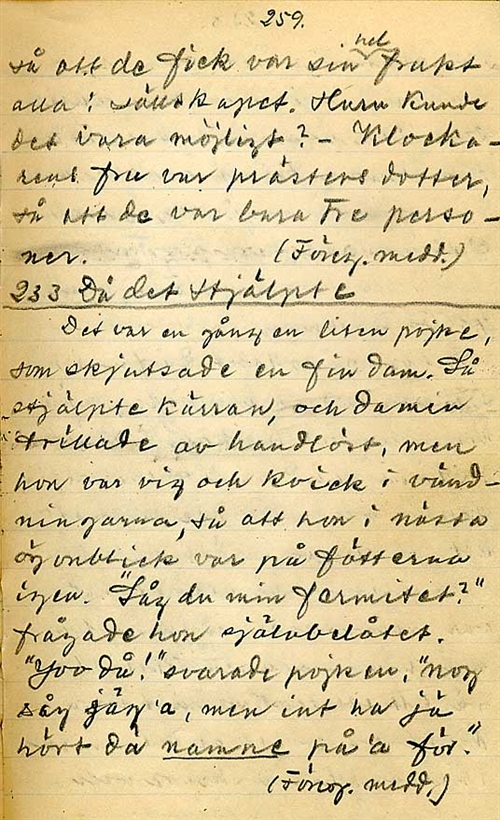 259.
hel
så att de fick var sin frukt
alla i sällskapet. Huru kunde
det vara möjligt? - Klocka-
rens fru var prästens dotter,
så att de var bara tre perso-
ner. (Föreg. medd.)
233 Då det stjälpte
Det var en gång en liten pojke,
som skjutsade en fin dam. Så
stjälpte kärran, och damen
trillade av handlöst, men
hon var vig och kvick i vänd-
ningarna, så att hon i nästa
ögonblick var på fötterna
igen. "Såg du min fermitet?"
frågade hon självbelåtet.
"Joo då!" svarade pojken, "nog
såg jäg'a, men int ha jä
hört då namne på'a för."
(Föreg. medd.)